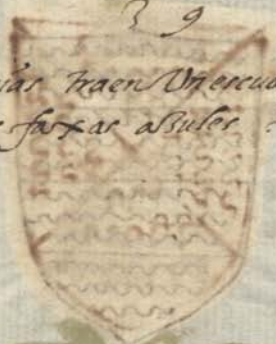 39
traen Un escu
faxas asules